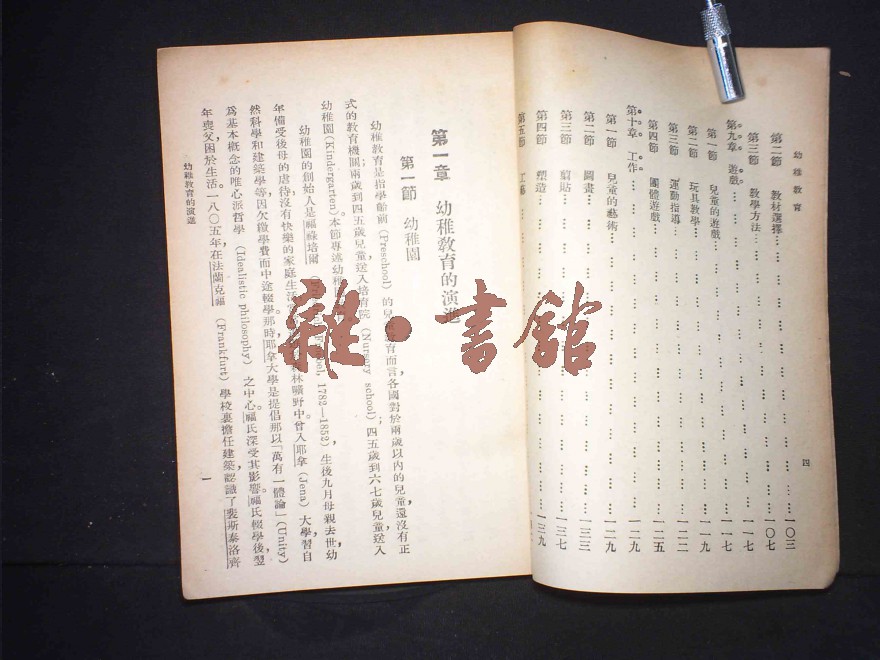 幼稚教育
四
第二節 教材選擇……………………一〇三
第三節 教學方法……………………一〇七
第九章 遊戲……………………一一七
第一節 兒童的遊戲……………………一一七
第二節 玩具教學……………………一一九
第三節 運動指導……………………一二二
第四節 團體遊戲……………………一二五
第十章 工作……………………一二九
第一節 兒童的藝術……………………一二九
第二節 圖畫……………………一三三
第三節 剪貼……………………一三七
第四節 塑造……………………一三九
第五節 工藝
第一章 幼稚教育的演進
第一節 幼稚園
幼稚教育是指學齡前(Preschool)的兒童教育而言,各國對於兩歲以內的兒童,還沒有正
式的教育機關;兩歲到四五歲兒童,送入培育院(Nursery school);四五歲到六七歲兒童送入
幼稚園(Kindergarten)。本節專述幼稚
幼稚園的創始人是福祿培爾 1782—1852),生後九月母親去世,幼
年備受後母的虐待,沒有快樂的家庭生活 林曠野中。曾入耶拿(Jena)大學,習自
然科學和建築學等,因欠繳學費而中途輟學。那時耶拿大學是提倡那以「萬有一體論」(Unity)
爲基本概念的唯心派哲學(Idealistic philosophy)之中心。福氏深受其影響。福氏輟學後,翌
年喪父,困於生活。一八〇五年,在法蘭克福(Frankfurt)學校裏擔任建築,認識了裴斯泰洛齊
幼稚教育的演進
一
雜·書館